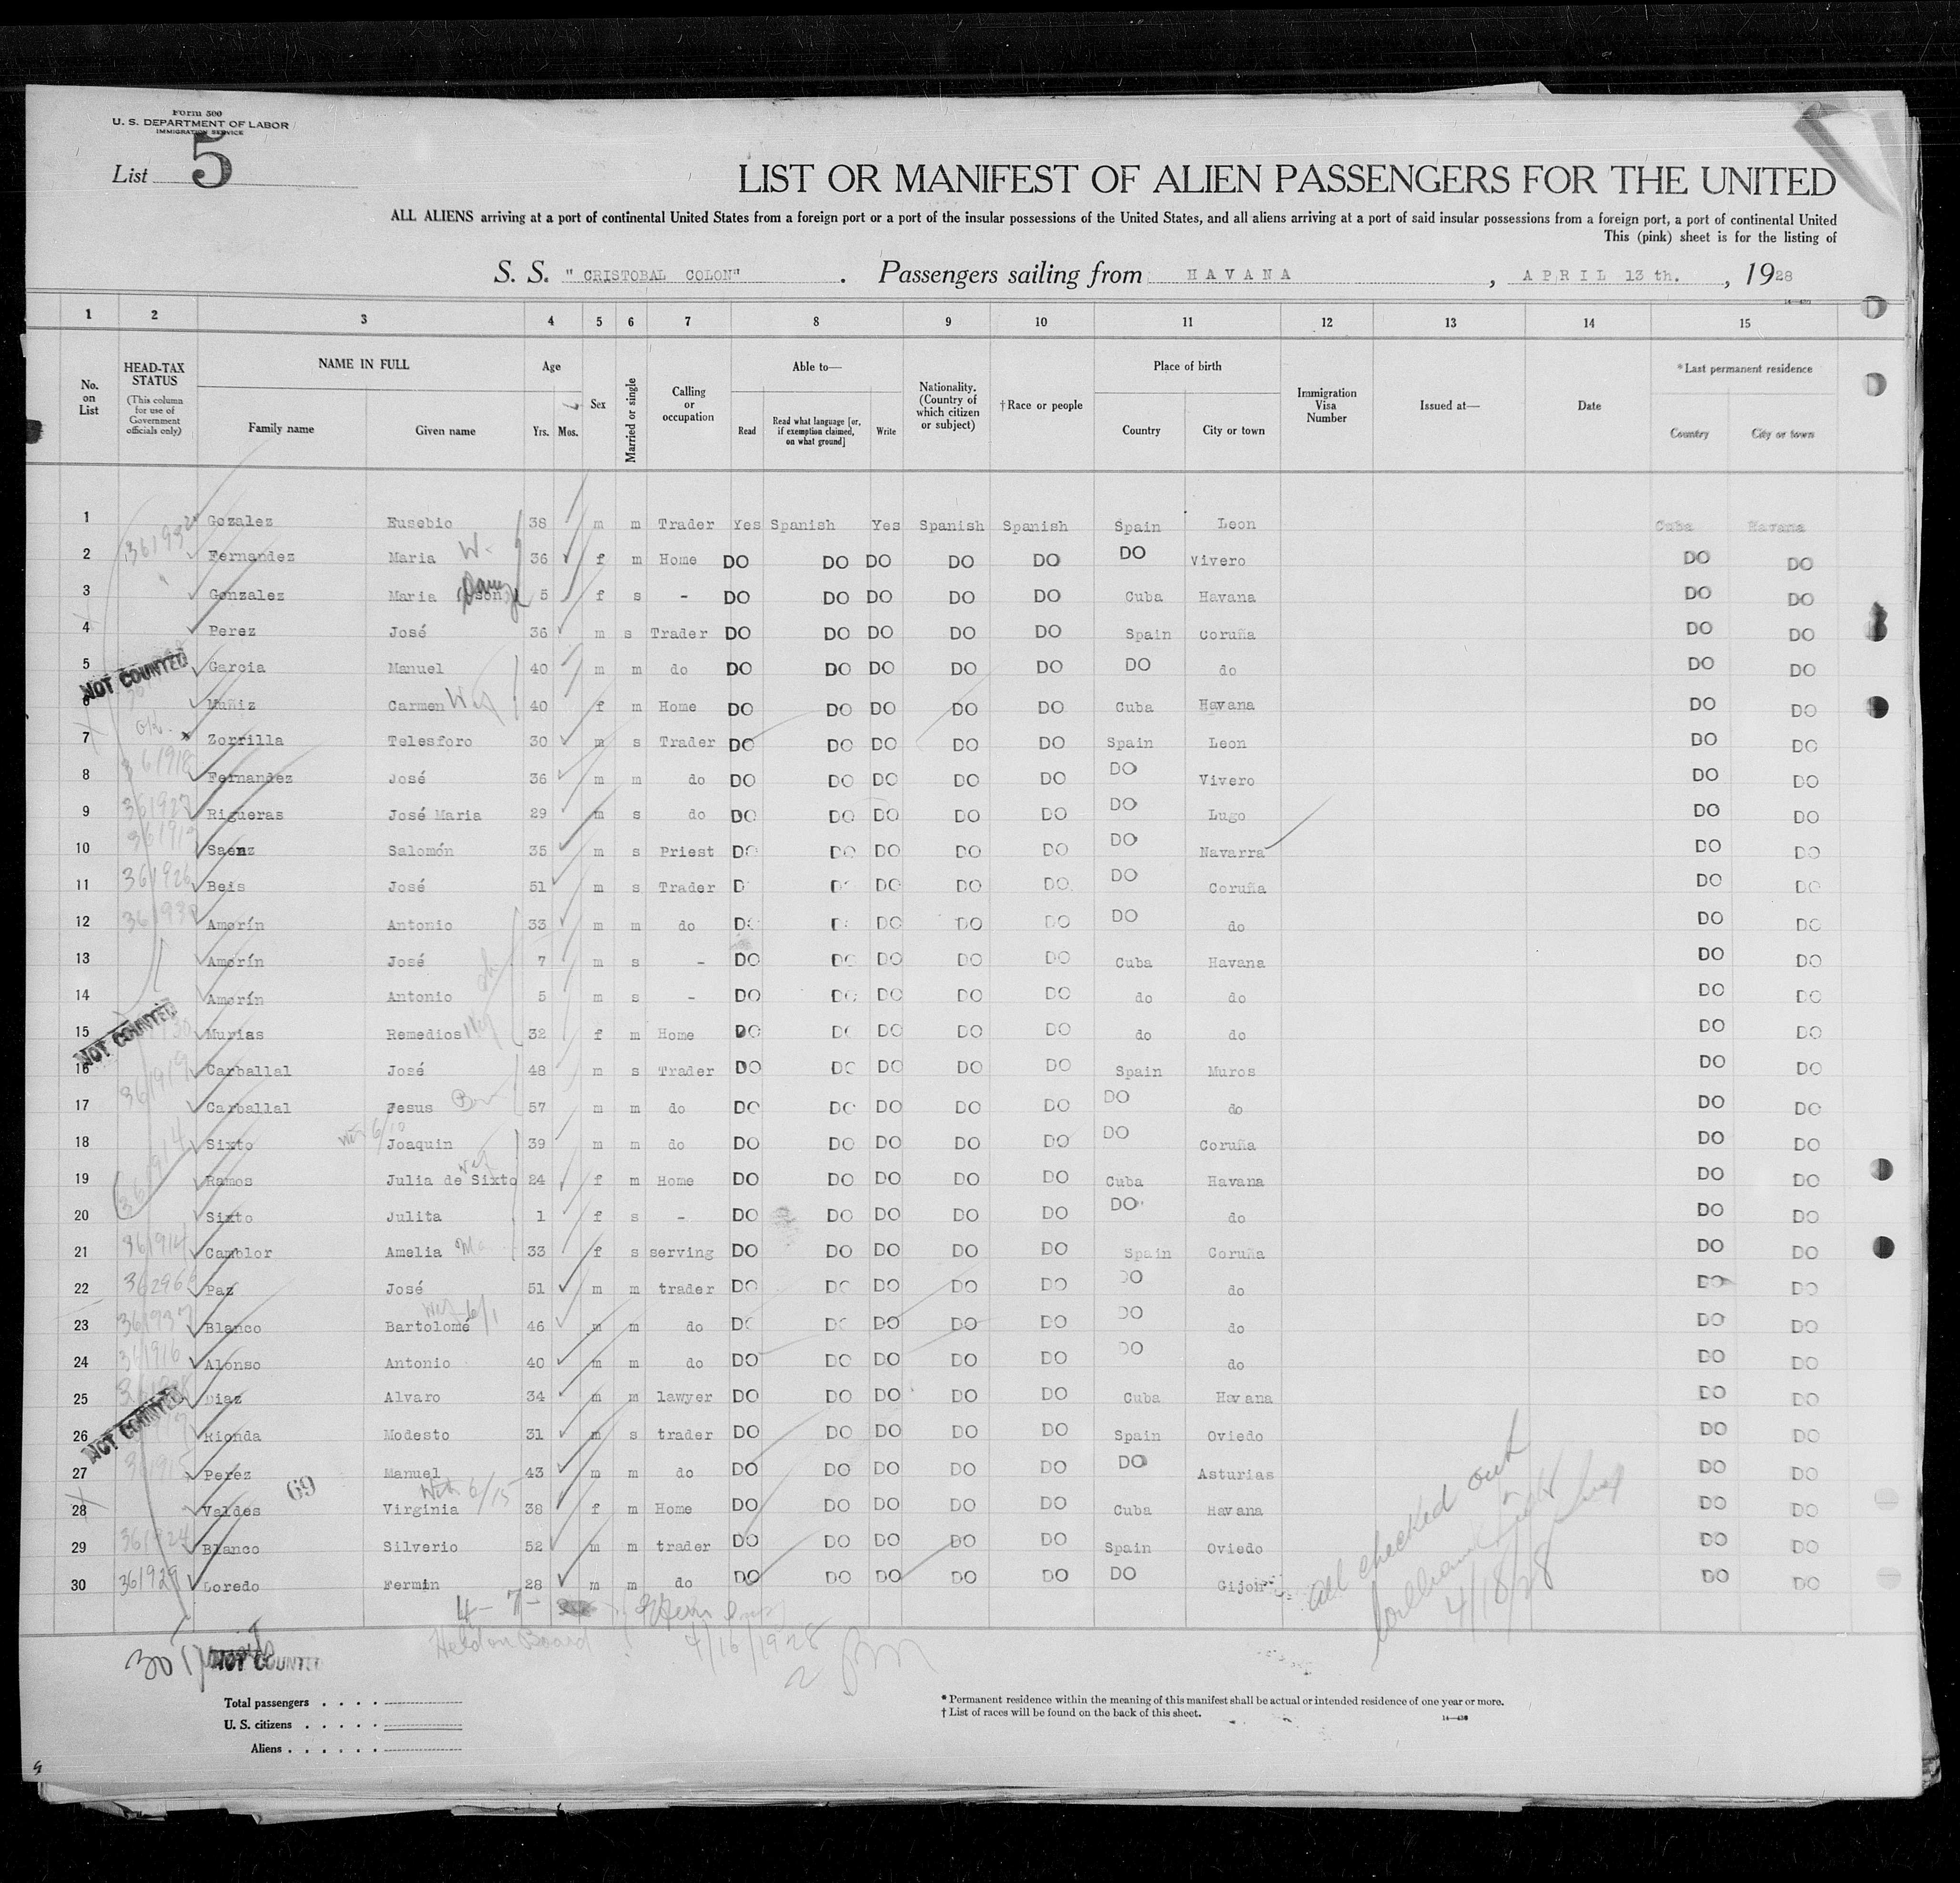 Form 500
U. S. DEPARTMENT OF LABOR
IMMIGRATION SERVICE
List 5
LIST OR MANIFEST OF ALIEN PASSENGERS FOR THE UNITED
ALL ALIENS arriving at a port of continental United States from a foreign port or a port of the insular possessions of the United States, and all aliens arriving at a port of said insular possessions from a foreign port, a port of continental United
This (pink) sheet is for the listing of
S. S. "CRISTOBAL COLON". Passengers sailing from HAVANA, APRIL 13 th., 1928
14—430
1 2 3 4 5 6 7 8 9 10 11 12 13 14 15
No. on List
HEAD-TAX STATUS (This column for use of Government officials only)
NAME IN FULL
Family name Given name
Age
Yrs. Mos.
Sex
Married or single
Calling or occupation
Able to—
Read Read what language [or, if exemption claimed, on what ground] Write
Nationality. (Country of which citizen or subject)
†Race or people
Place of birth
Country City or town
Immigration Visa Number
Issued at—
Date
*Last permanent residence
Country City or town
1 Gozalez Eusebio 38 m m Trader Yes Spanish Yes Spanish Spanish Spain Leon Cuba Havana
2 Fernandez Maria W. 36 f m Home DO DO DO DO DO DO Vivero DO DO
3 Gonzalez Maria 5 f s - DO DO DO DO DO Cuba Havana DO DO
4 Perez José 36 m s Trader DO DO DO DO DO Spain Coruña DO DO
5 NOT COUNTED Garcia Manuel 40 m m do DO DO DO DO DO DO do DO DO
6 Muñiz Carmen 40 f m Home DO DO DO DO DO Cuba Havana DO DO
7 OK. Zorrilla Telesforo 30 m s Trader DO DO DO DO DO Spain Leon DO DO
8 361918 Fernandez José 36 m m do DO DO DO DO DO DO Vivero DO DO
9 361927 Rigueras José Maria 29 m s do DO DO DO DO DO DO Lugo DO DO
10 Saenz Salomón 35 m s Priest DO DO DO DO DO DO Navarra DO DO
11 361926 Beis José 51 m s Trader D DO DO DO DO Coruña DO DO
12 Amorín Antonio 33 m m do DO DO DO DO DO do DO DO
13 Amorín José 7 m s - DO DO DO DO DO Cuba Havana DO DO
14 Amorín Antonio 5 m s - DO DO DO DO DO do do DO DO
15 NOT COUNTED Murias Remedios 32 f m Home DO DO DO DO DO do do DO DO
16 361919 Carballal José 48 m s Trader DO DO DO DO DO Spain Muros DO DO
17 Carballal Jesus 57 m m do DO DO DO DO DO DO do DO DO
18 Sixto Joaquin 39 m m do DO DO DO DO DO DO Coruña DO DO
19 Ramos Julia de Sixto 24 f m Home DO DO DO DO DO Cuba Havana DO DO
20 Sixto Julita 1 f s - DO DO DO DO DO DO do DO DO
21 361914 Camblor Amelia 33 f s serving DO DO DO DO DO Spain Coruña DO DO
22 Paz José 51 m m trader DO DO DO DO DO DO do DO DO
23 361937 Blanco Bartolomé 46 m m do DO DO DO DO DO DO do DO DO
24 361916 Alonso Antonio 40 m m do DO DO DO DO DO DO do DO DO
25 Diaz Alvaro 34 m m lawyer DO DO DO DO DO Cuba Havana DO DO
26 NOT COUNTED Rionda Modesto 31 m s trader DO DO DO DO DO Spain Oviedo DO DO
27 361915 Perez Manuel 43 m m do DO DO DO DO DO DO Asturias DO DO
69
28 Valdes Virginia 38 f m Home DO DO DO DO DO Cuba Havana DO DO
29 361924 Blanco Silverio 52 m m trader DO DO DO DO DO Spain Oviedo DO DO
30 361929 Loredo Fermin 28 m m do DO DO DO DO DO DO Gijon DO DO
4 - 7 -
Held on Board
4/16/1928
2 pm
All checked out
4/18/28
30
NOT COUNTED
Total passengers
U. S. citizens
Aliens
* Permanent residence within the meaning of this manifest shall be actual or intended residence of one year or more.
† List of races will be found on the back of this sheet.
14—430